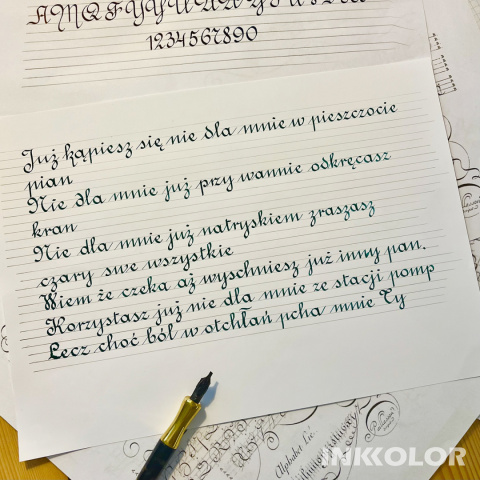 1234567890
Już kąpiesz się nie dla mnie w pieszczocie
pian
Nie dla mnie już przy wannie odkręcasz
kran
Nie dla mnie już natryskiem zraszasz
czary swe wszystkie
Wiem że czeka aż wyschniesz już inny pan.
Korzystasz już nie dla mnie ze stacji pomp
Lecz choć ból w otchłań pcha mnie Ty
Alphabet Lie
INKKOLOR